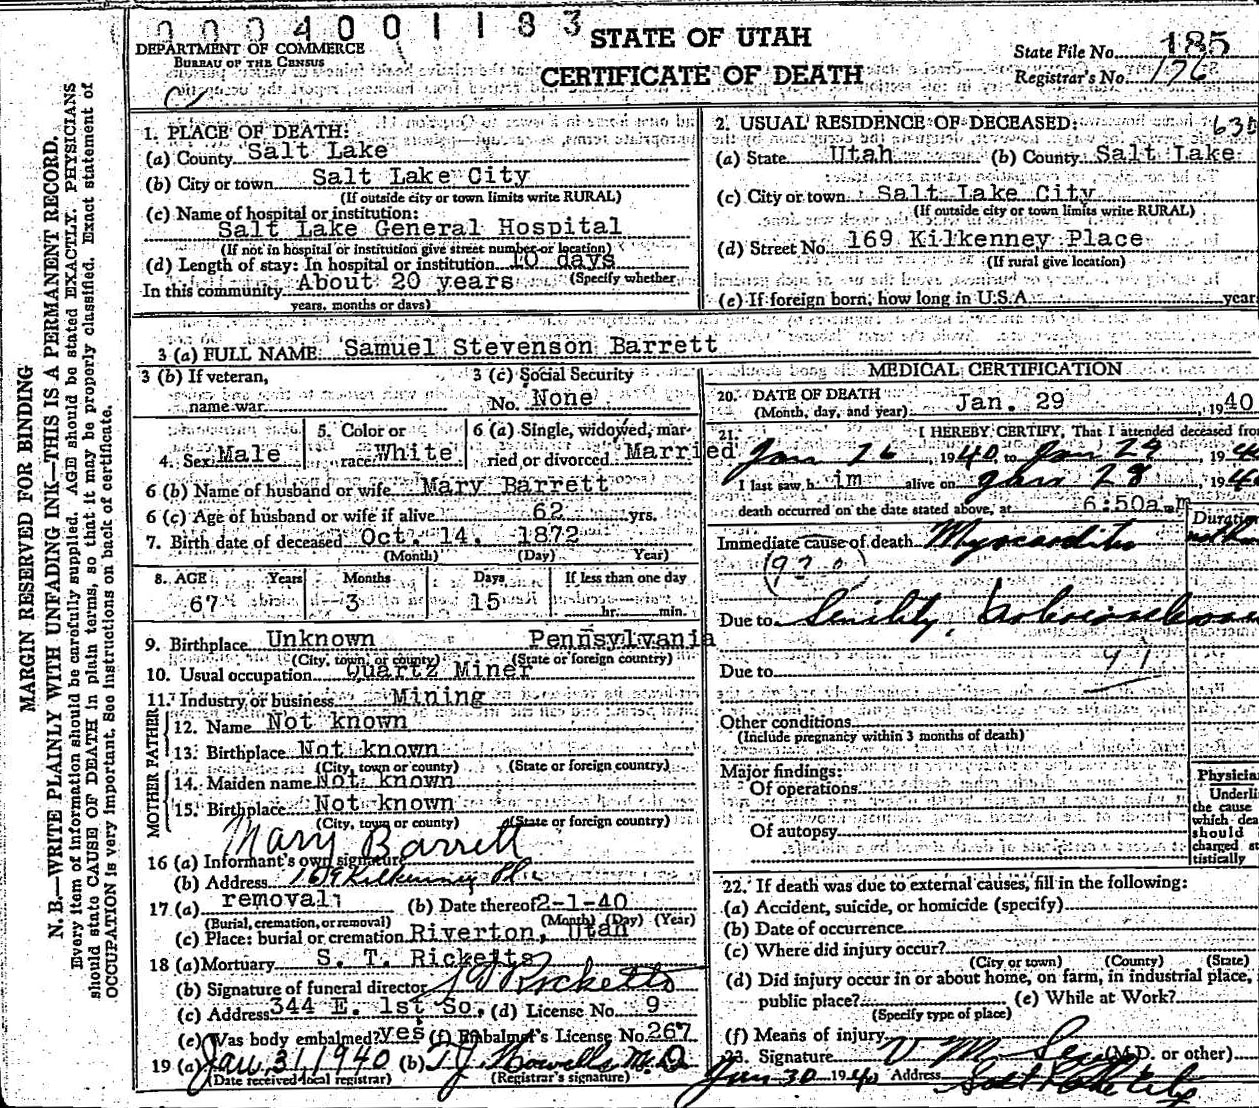 0004001183
DEPARTMENT OF COMMERCE
BUREAU OF THE CENSUS
STATE OF UTAH
CERTIFICATE OF DEATH
State File No. 185
Registrar's No. 176
MARGIN RESERVED FOR BINDING
N. B.—WRITE PLAINLY WITH UNFADING INK—THIS IS A PERMANENT RECORD.
Every item of information should be carefully supplied. AGE should be stated EXACTLY. PHYSICIANS
should state CAUSE OF DEATH in plain terms, so that it may be properly classified. Exact statement of
OCCUPATION is very important. See instructions on back of certificate.
1. PLACE OF DEATH:
(a) County Salt Lake
(b) City or town Salt Lake City
(If outside city or town limits write RURAL)
(c) Name of hospital or institution:
Salt Lake General Hospital
(If not in hospital or institution give street number or location)
(d) Length of stay: In hospital or institution 10 days
In this community About 20 years (Specify whether
years, months or days)
2. USUAL RESIDENCE OF DECEASED: 635
(a) State Utah (b) County Salt Lake
(c) City or town Salt Lake City
(If outside city or town limits write RURAL)
(d) Street No. 169 Kilkenney Place
(If rural give location)
(e) If foreign born, how long in U.S.A. year
3 (a) FULL NAME: Samuel Stevenson Barrett
3 (b) If veteran,
name war
3 (c) Social Security
No. None
4. Sex Male
5. Color or
race White
6 (a) Single, widowed, mar-
ried or divorced Married
6 (b) Name of husband or wife Mary Barrett
6 (c) Age of husband or wife if alive 62 yrs.
7. Birth date of deceased Oct. 14, 1872
(Month) (Day) Year)
8. AGE Years Months Days If less than one day
67 3 15 hr. min.
9. Birthplace Unknown Pennsylvania
(City, town, or county) (State or foreign country)
10. Usual occupation Quartz Miner
11. Industry or business Mining
FATHER
12. Name Not known
13. Birthplace Not known
(City, town or county) (State or foreign country)
MOTHER
14. Maiden name Not known
15. Birthplace Not known
(City, town or county) (State or foreign country)
16 (a) Informant's own signature Mary Barrett
(b) Address 169 Kilkenney Pl.
17 (a) removal (b) Date thereof 2-1-40
(Burial, cremation, or removal) (Month) (Day) (Year)
(c) Place: burial or cremation Riverton, Utah
18 (a) Mortuary S. T. Ricketts
(b) Signature of funeral director S T Ricketts
(c) Address 344 E. 1st So. (d) License No. 9
(e) Was body embalmed? yes (f) Embalmer's License No. 267
19 (a) Jan. 31, 1940 (b) T. J. Howells M.D.
(Date received local registrar) (Registrar's signature)
MEDICAL CERTIFICATION
20. DATE OF DEATH
(Month, day, and year) Jan. 29, 1940
21. I HEREBY CERTIFY, That I attended deceased from
Jan 26, 1940 to Jan 29, 1940
I last saw h im alive on Jan 28, 1940
death occurred on the date stated above, at 6:50a.m
Duration
Immediate cause of death Myocarditis
Due to Senility,
Due to
Other conditions
(Include pregnancy within 3 months of death)
Major findings:
Of operations
Of autopsy
Physician
Underli
the cause
which dea
should
charged st
tistically
22. If death was due to external causes, fill in the following:
(a) Accident, suicide, or homicide (specify)
(b) Date of occurrence
(c) Where did injury occur?
(City or town) (County) (State)
(d) Did injury occur in or about home, on farm, in industrial place,
public place? (e) While at Work?
(Specify type of place)
(f) Means of injury
23. Signature (M.D. or other)
Jan 30 1940 Address Salt Lake City